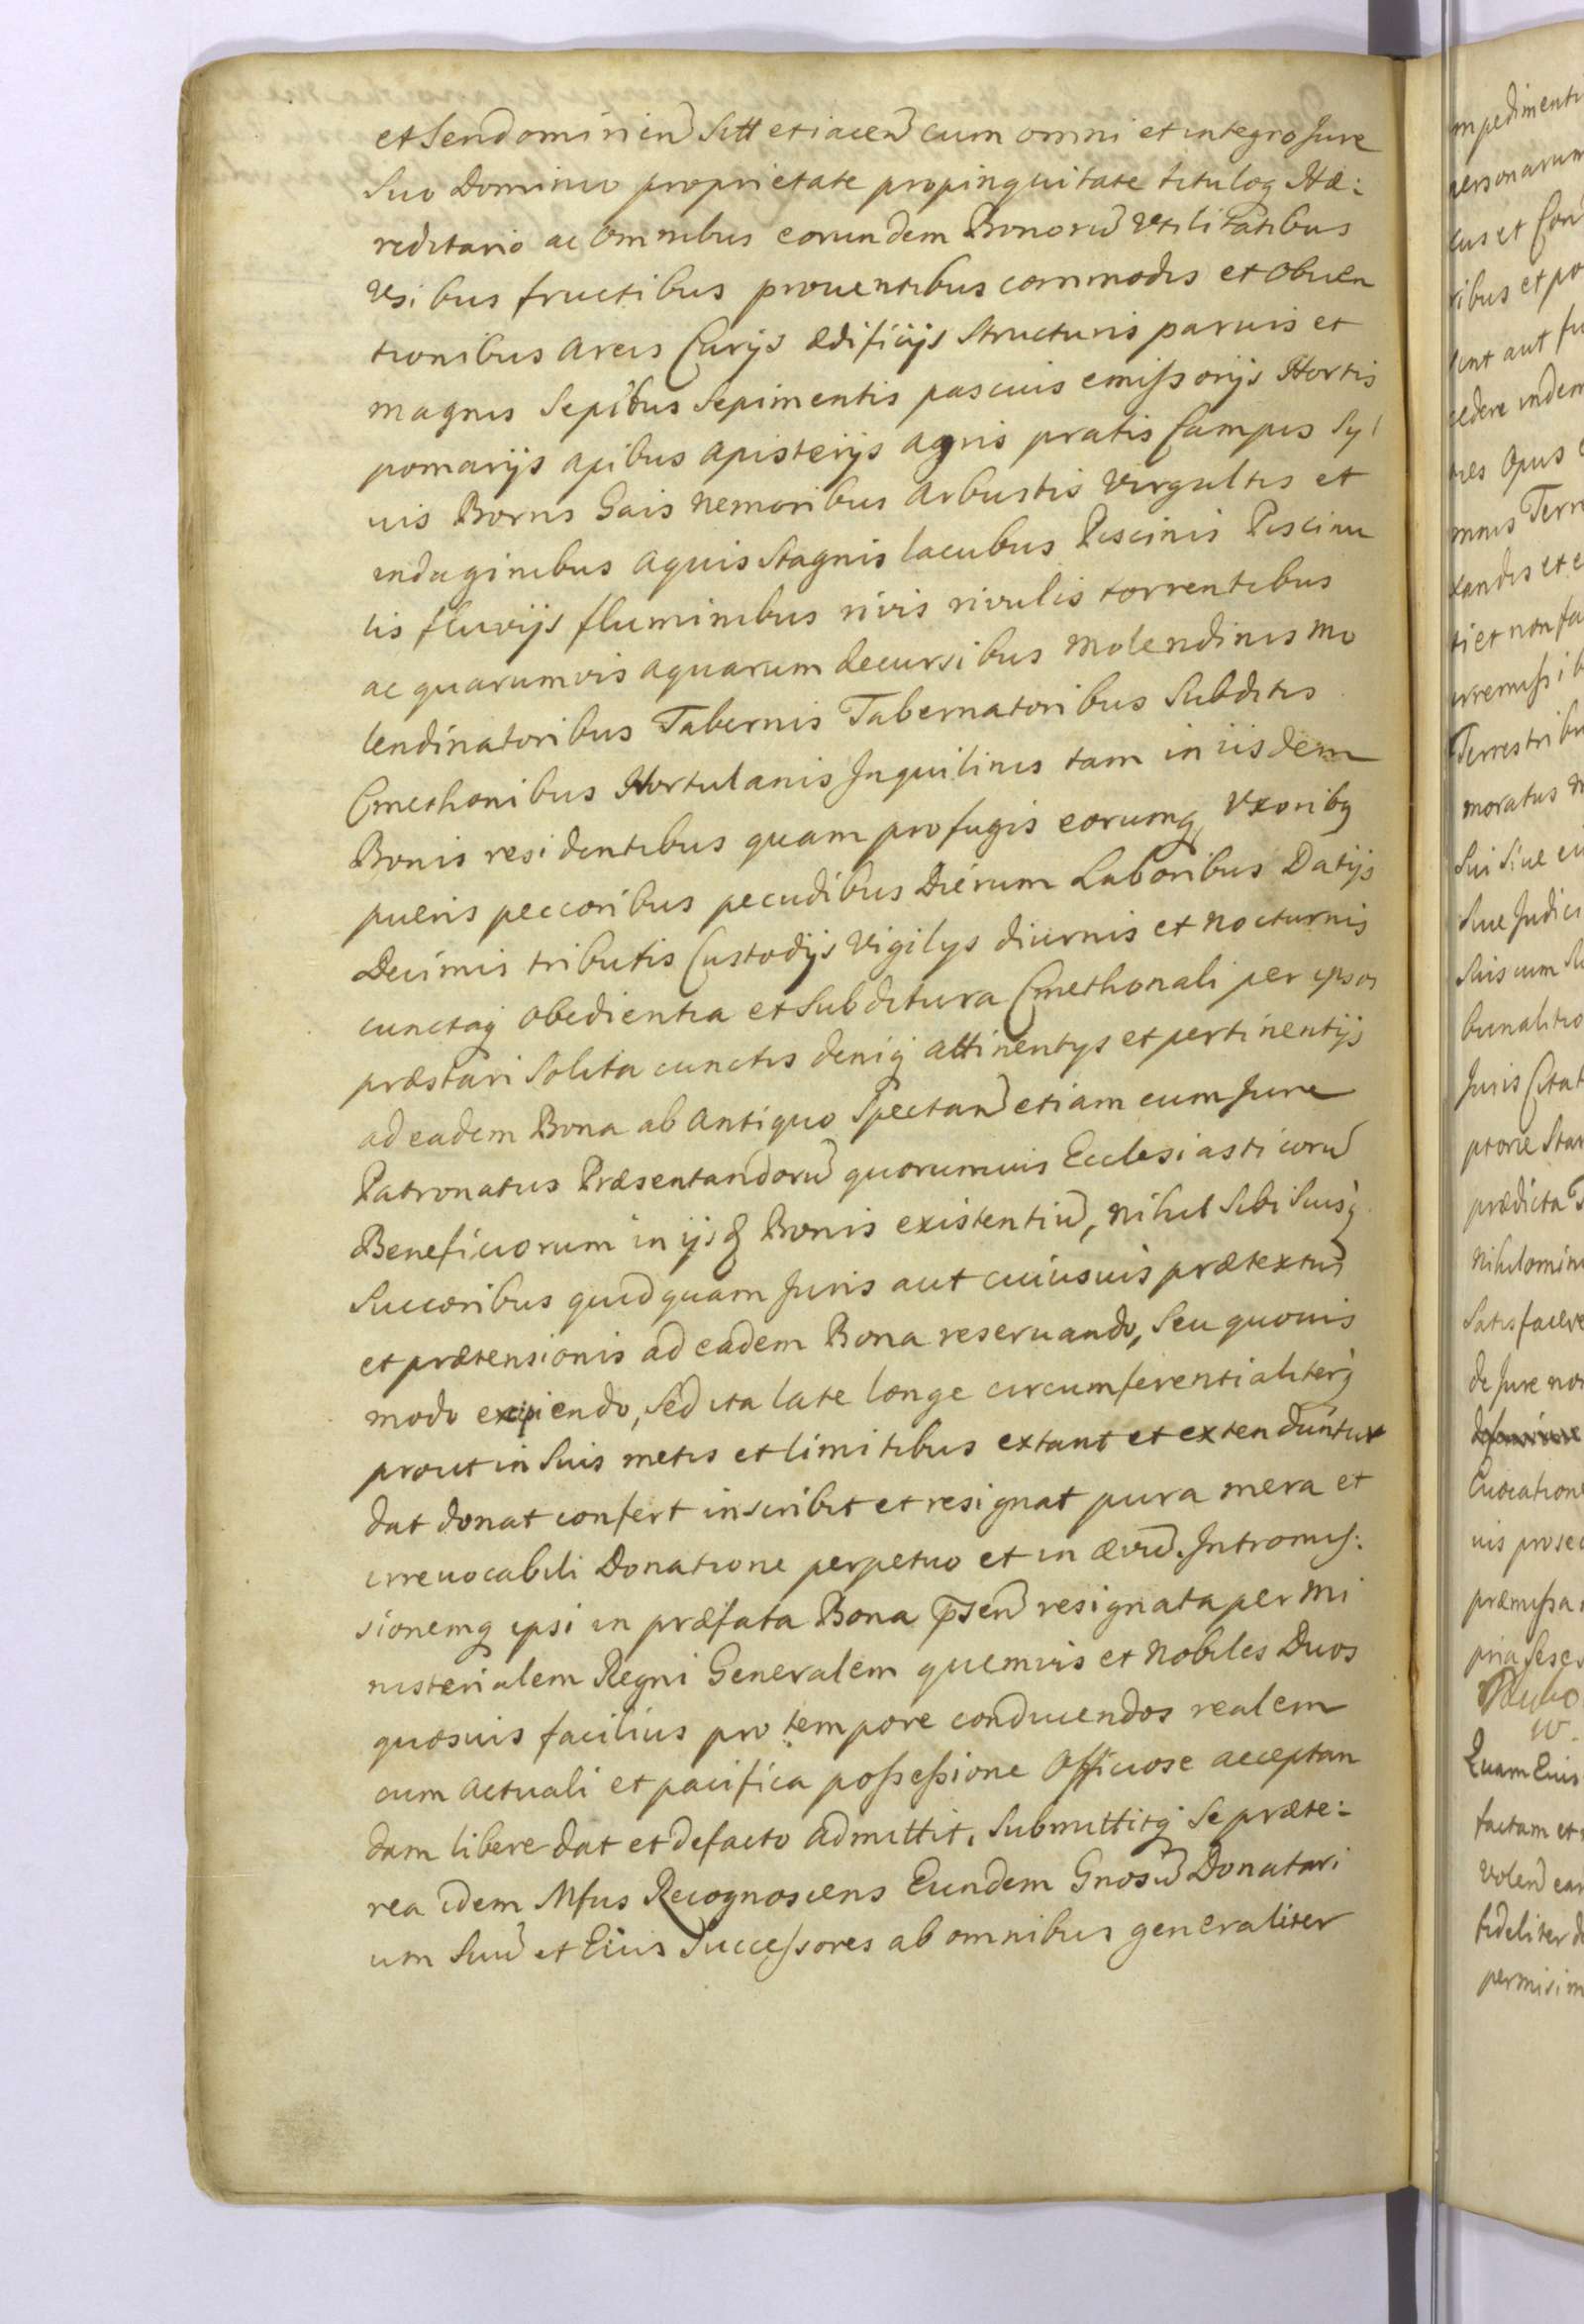 et Sendomirien Sitt et iacen cum omni et integro Jure
Suo Dominio proprietate propinquitate tituloq Hæ:
reditario ac omnibus eorundem Bonoru Vtilitatibus
Vsibus fructibus prouentibus commodis et obuen
tionibus areis Curijs ædificijs Structuris paruis et
magnis Sepibus Sepimentis pascuis emissorijs Hortis
pomarijs apibus apisterijs agris pratis Campis Syl
uis Borris Gais nemoribus arbustis Virgultis et
indaginibus aquis Stagnis lacubus Piscinis Piscinu
lis fluvijs fluminibus rivis rivulis torrentibus
ac quarumvis aquarum decursibus molendinis mo
lendinatoribus Tabernis Tabernatoribus Subditis
Cmethonibus Hortulanis Inquilinis tam in iisdem
Bonis residentibus quam profugis eorumq Vxoribq
pueris peccoribus pecudibus Dierum Laboribus Datijs
Decimis tributis Custodijs Vigilys diurnis et nocturnis
cunctaq obedientia et Subditura Cmethonali per ipsos
præstari Solita cunctis deniq attinentys et pertinentijs
ad eadem Bona ab antiquo Spectan etiam cum Jure
Patronatus Præsentandoru quorumuis Ecclesiasticoru
Beneficiorum in ijsd Bonis existentiu, nihil Sibi Suisq
Succoribus quidquam Juris aut cuiusuis prætextus
et prætensionis ad eadem Bona reseruando, Seu quouis
modo excipiendo, Sed ita late longe circumferentialiterq
prout in Suis metis et limitibus extant et extenduntur
dat donat confert inscribit et resignat pura mera et
irreuocabili Donatione perpetuo et in ævu. Intromis:
sionemq ipsi in præfata Bona psen resignata per Mi
nisterialem Regni Generalem quemvis et Nobiles Duos
quosuis facilius pro tempore conducendos realem
cum actuali et pacifica possessione Officiose acceptan
dam libere dat et defacto admittit. Submittitq Se præte:
rea idem Mfus Recognoscens Eundem Gnosu Donatari
um Suu et Eius Successores ab omnibus generaliter
mpedimentu
personarum
ribus et po
Terrestribu
moratus
Suis cum
Juris Citat
prædicta
Satisfacere
de Jure non
præmissa
Quam Eius
factam et
Volen ean
fideliter
permisim